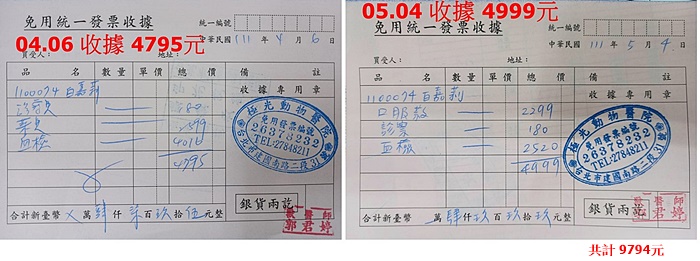 免用統一發票收據
統一編號
04.06 收據 4795元
中華民國 111 年 4 月 6 日
買受人：
地址：
品 名 數 量 單 價 總 價 備 註
收據專用章
1100074 白嘉莉
180
藥費 599
血檢 4016
4795
極光動物醫院
免用發票編號
26378232
TEL:27848211
台北市建國南路二段31號
合計新臺幣 X 萬 肆 仟 柒 百 玖 拾 伍 元整
銀貨兩訖
獸醫師
郭君婷
05.04 收據 4999元
免用統一發票收據
統一編號
中華民國 111 年 5 月 4 日
買受人：
地址：
品 名 數 量 單 價 總 價 備 註
收據專用章
1100074 白嘉莉
口服藥 2299
診察 180
血檢 2520
4999
極光動物醫院
免用發票編號
26378232
TEL:27848211
台北市建國南路二段31號
合計新臺幣 萬 肆 仟 玖 百 玖 拾 玖 元整
銀貨兩訖
獸醫師
郭君婷
共計 9794元